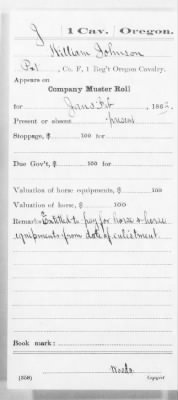 J 1 Cav. Oregon.
William Johnson
Pvt, Co. F, 1 Reg't Oregon Cavalry.
Appears on
Company Muster Roll
for Jan & Feb, 186
Present or absent present
Stoppage, $ 100 for
Due Gov't, $ 100 for
Valuation of horse equipments, $ 100
Valuation of horse, $ 100
Remarks: Entitled to pay for horse & horse
equipments from date of enlistment
Book mark:
(358) Copyist